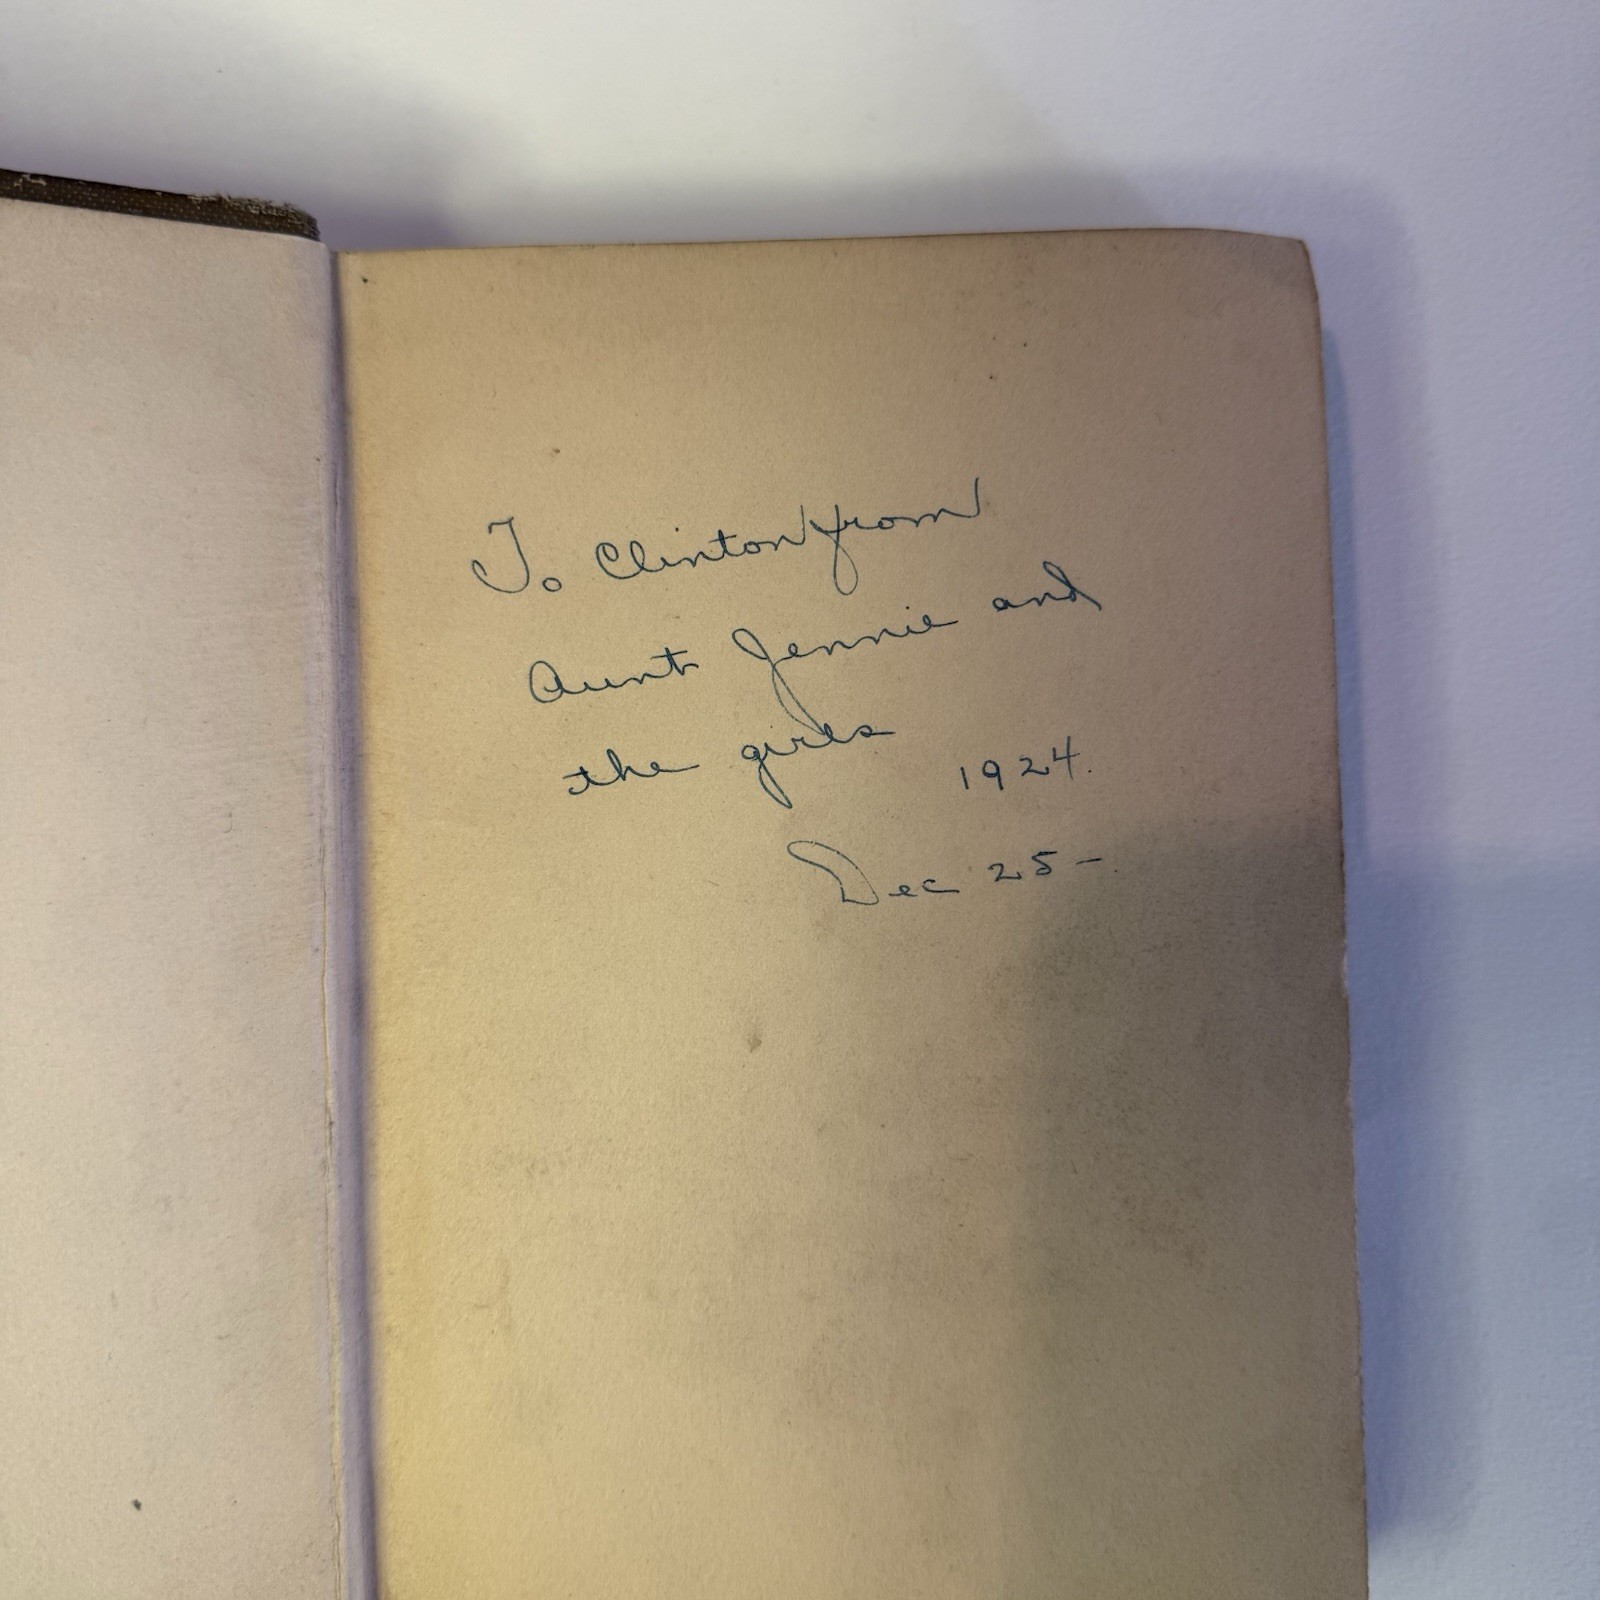 To Clinton from
Aunt Jennie and
the girls
1924.
Dec 25-